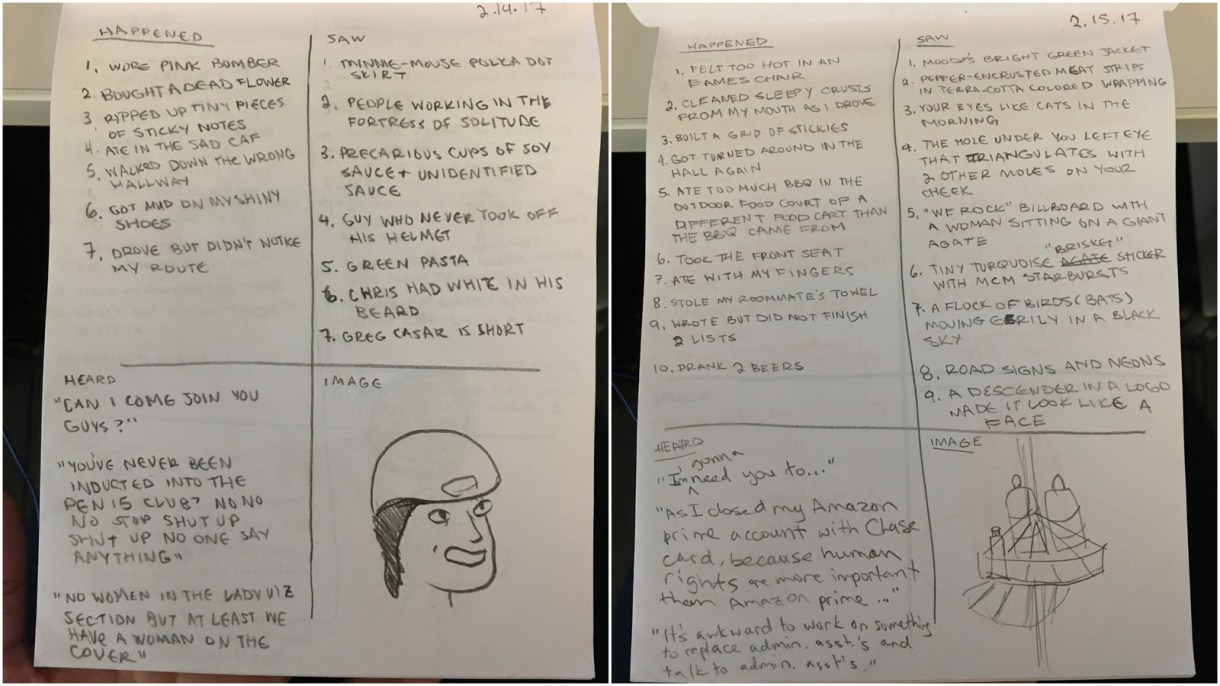 2.14.17
HAPPENED
1. WORE PINK BOMBER
2. BOUGHT A DEAD FLOWER
3 RIPPED UP TINY PIECES
OF STICKY NOTES
4. ATE IN THE SAD CAF
5. WALKED DOWN THE WRONG
HALLWAY
6. GOT MUD ON MY SHINY
SHOES
7. DROVE BUT DIDN'T NOTICE
MY ROUTE
SAW
1. MINNIE-MOUSE POLKA DOT
SKIRT
2. PEOPLE WORKING IN THE
FORTRESS OF SOLITUDE
3. PRECARIOUS CUPS OF SOY
SAUCE + UNIDENTIFIED
SAUCE
4. GUY WHO NEVER TOOK OFF
HIS HELMET
5. GREEN PASTA
6. CHRIS HAD WHITE IN HIS
BEARD
7. GREG CASAR IS SHORT
HEARD
"CAN I COME JOIN YOU
GUYS?"
"YOU'VE NEVER BEEN
INDUCTED INTO THE
PEN 15 CLUB? NO NO
NO STOP SHUT UP
SHUT UP NO ONE SAY
ANYTHING"
"NO WOMEN IN THE LADY VIZ
SECTION BUT AT LEAST WE
HAVE A WOMAN ON THE
COVER"
IMAGE
2.15.17
HAPPENED
1. FELT TOO HOT IN AN
EAMES CHAIR
2. CLEANED SLEEPY CRUSTS
FROM MY MOUTH AS I DROVE
3. BUILT A GRID OF STICKIES
4. GOT TURNED AROUND IN THE
HALL AGAIN
5. ATE TOO MUCH BBQ IN THE
OUTDOOR FOOD COURT OF A
DIFFERENT FOOD CART THAN
THE BBQ CAME FROM
6. TOOK THE FRONT SEAT
7. ATE WITH MY FINGERS
8. STOLE MY ROOMMATE'S TOWEL
9. WROTE BUT DID NOT FINISH
2 LISTS
10. DRANK 2 BEERS
SAW
1. MOODY'S BRIGHT GREEN JACKET
2. PEPPER-ENCRUSTED MEAT STRIPS
IN TERRA-COTTA COLORED WRAPPING
3. YOUR EYES LIKE CATS IN THE
MORNING
4. THE MOLE UNDER YOU LEFT EYE
THAT TRIANGULATES WITH
2 OTHER MOLES ON YOUR
CHEEK
5. "WE ROCK" BILLBOARD WITH
A WOMAN SITTING ON A GIANT
AGATE
6. TINY TURQUOISE "BRISKET" AGATE STICKER
WITH MCM STARBURSTS
7. A FLOCK OF BIRDS (BATS)
MOVING EERILY IN A BLACK
SKY
8. ROAD SIGNS AND NEONS
9. A DESCENDER IN A LOGO
MADE IT LOOK LIKE A
FACE
HEARD
"I'm gonna need you to..."
"As I closed my Amazon
prime account with Chase
card, because human
rights are more important
them Amazon prime..."
"It's awkward to work on something
to replace admin. asst's and
talk to admin. asst's."
IMAGE